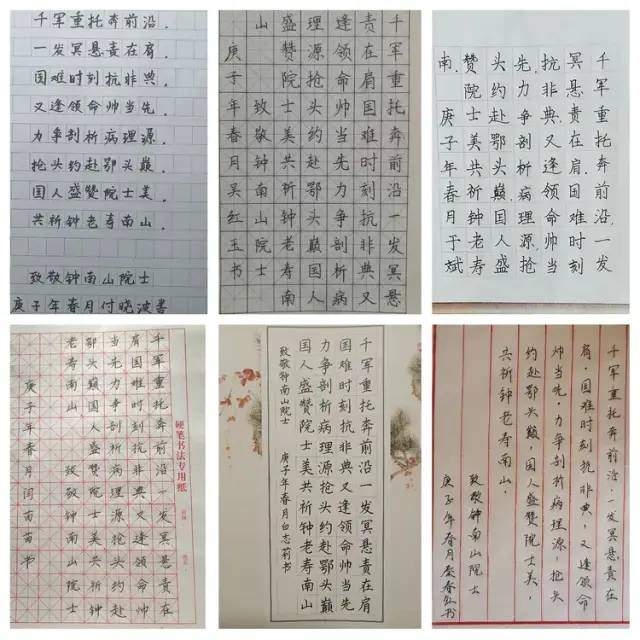 千军重托奔前沿，
一发冥悬责在肩，
国难时刻抗非典，
又逢领命帅当先，
力争剖析病理源，
抢头约赴鄂头巅，
国人盛赞院士美，
共祈钟老寿南山，
致敬钟南山院士
庚子年春月付晓波书
千军重托奔前沿一发冥悬
责在肩国难时刻抗非典又
逢领命帅当先力争剖析病
理源抢头约赴鄂头巅国人
盛赞院士美共祈钟老寿南
山 致敬钟南山院士
庚子年春月吴红玉书
千军重托奔前沿，一发
冥悬责在肩，国难时刻
抗非典，又逢领命帅当
先，力争剖析病理源，抢
头约赴鄂头巅，国人盛
赞院士美共祈钟老寿
南，庚子年春月于斌
硬笔书法专用纸
千军重托奔前沿一发冥悬责在
肩国难时刻抗非典又逢领命帅
当先力争剖析病理源抢头约赴
鄂头巅国人盛赞院士美共祈钟
老寿南山 致敬钟南山院士
庚子年春月闫苗苗书
千军重托奔前沿一发冥悬责在肩
国难时刻抗非典又逢领命帅当先
力争剖析病理源抢头约赴鄂头巅
国人盛赞院士美共祈钟老寿南山
致敬钟南山院士 庚子年春月白志莉书
千军重托奔前沿，一发冥悬责在
肩，国难时刻抗非典，又逢领命
帅当先，力争剖析病理源，抢头
约赴鄂头巅，国人盛赞院士美，
共祈钟老寿南山，
致敬钟南山院士
庚子年春月秦春书